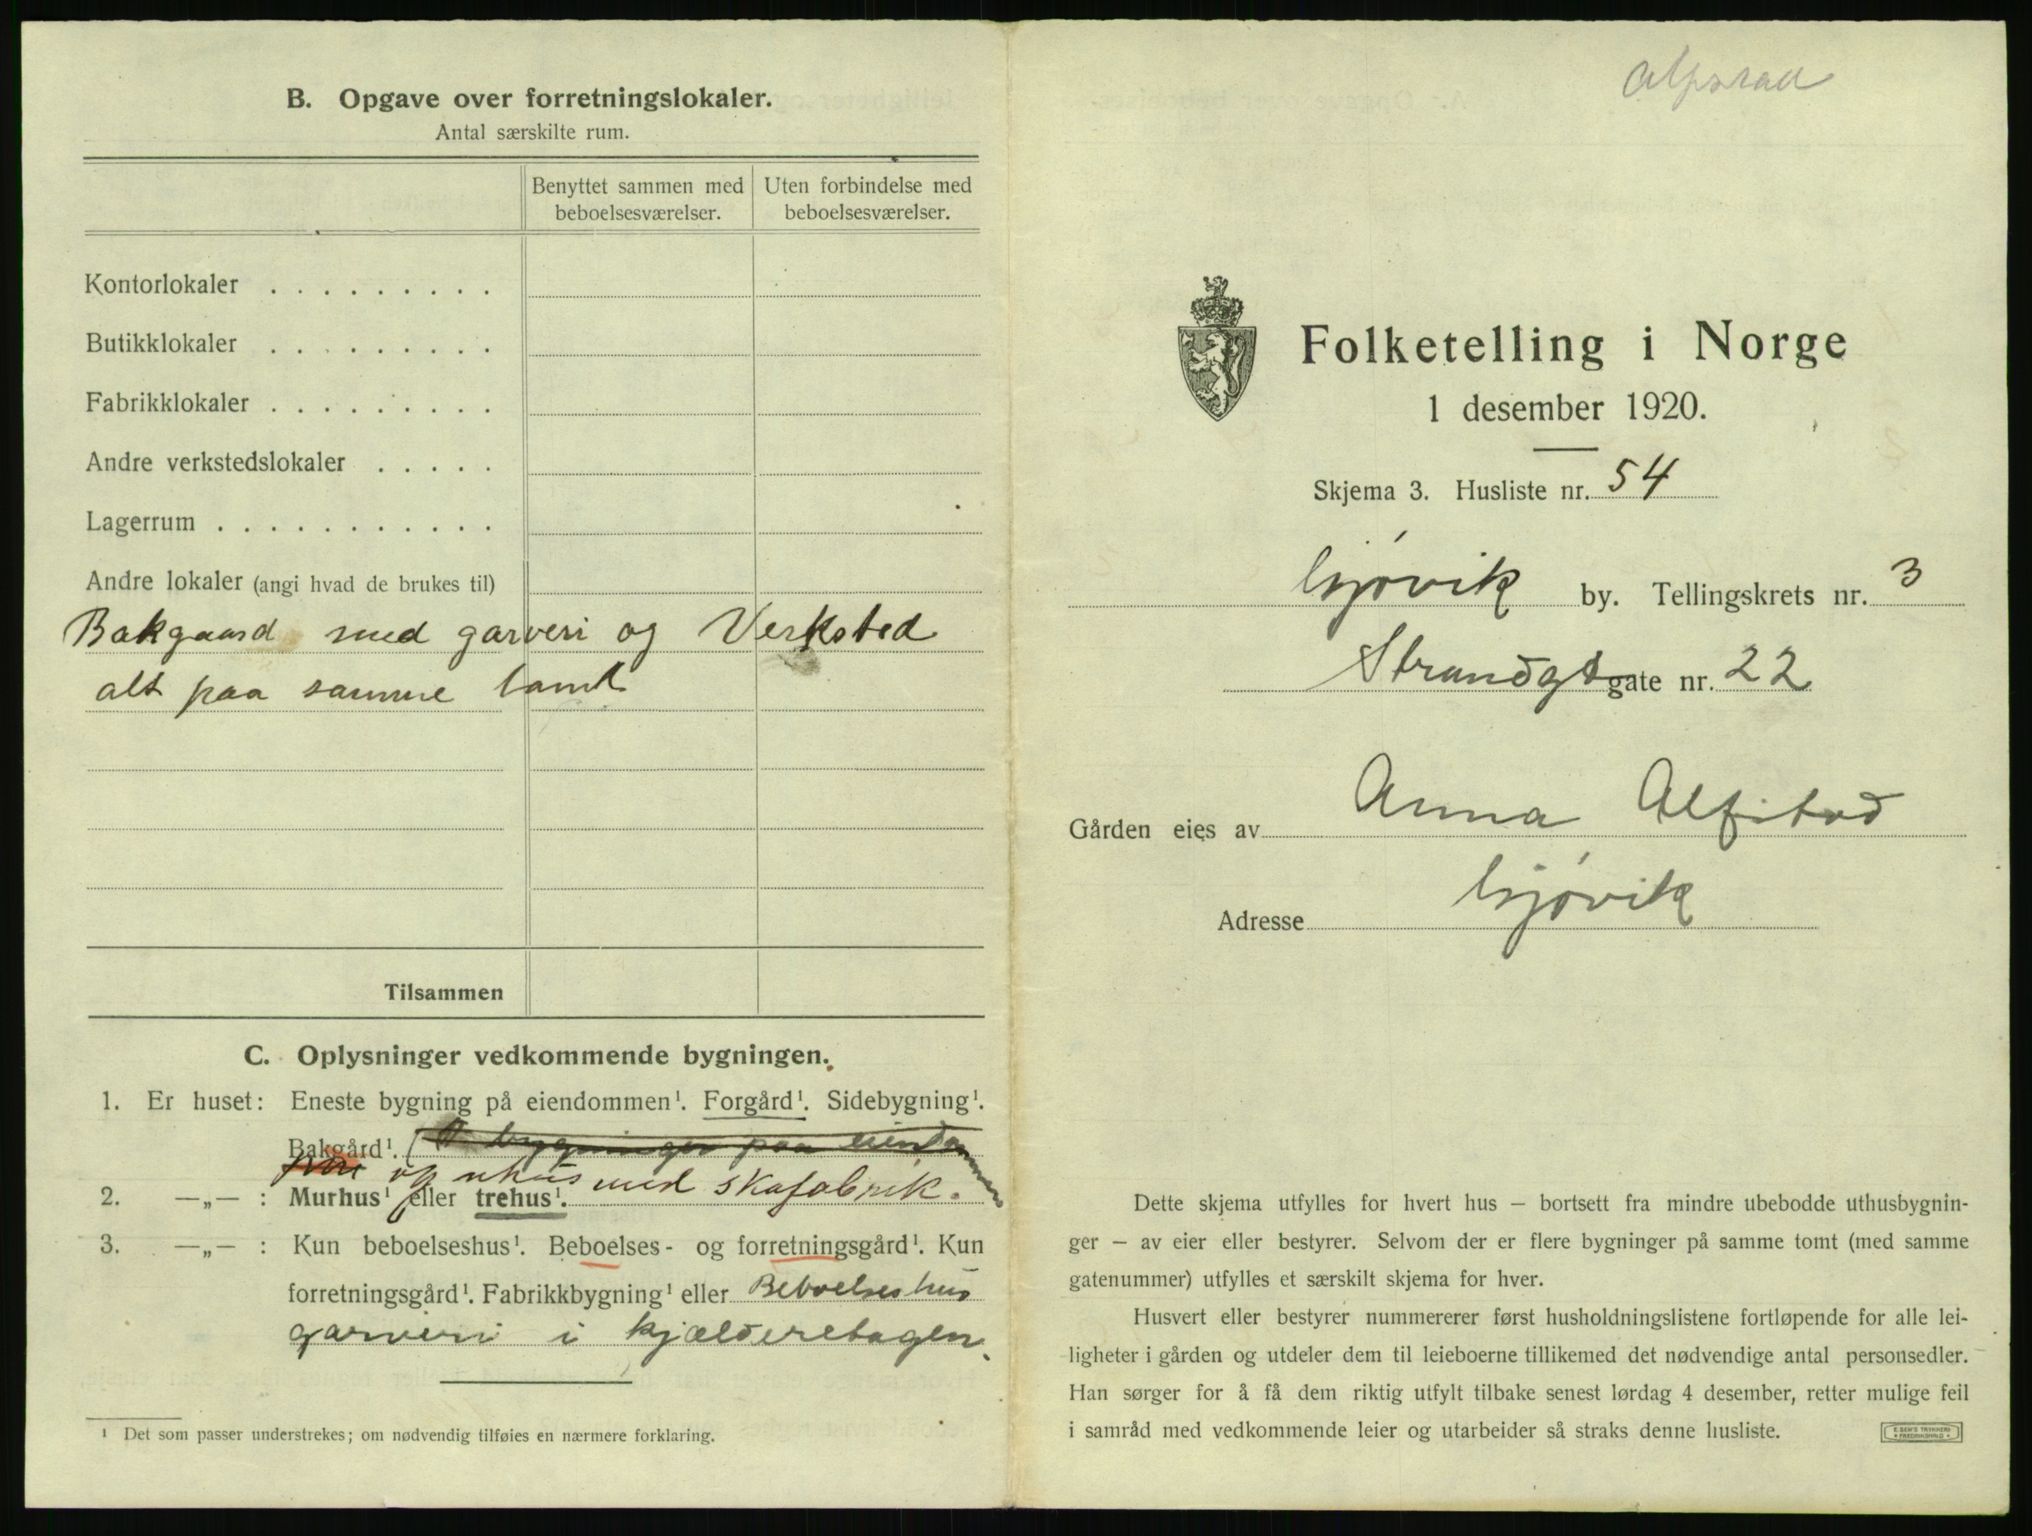 B. Opgave over forretningslokaler.
Antal særskilte rum.
Benyttet sammen med beboelsesværelser.
Uten forbindelse med beboelsesværelser.
Kontorlokaler . . . . . . . . .
Butikklokaler . . . . . . . . .
Fabrikklokaler . . . . . . . . .
Andre verkstedslokaler . . . . .
Lagerrum . . . . . . . . . . .
Andre lokaler (angi hvad de brukes til)
Bakgaard med garveri og Verksted
alt paa samme tomt
Tilsammen
C. Oplysninger vedkommende bygningen.
1. Er huset: Eneste bygning på eiendommen¹. Forgård¹. Sidebygning¹.
Bakgård¹. ( bygninger paa eiendommen
og uthus med skofabrik.
2. —„— : Murhus¹ eller trehus¹.
3. —„— : Kun beboelseshus¹. Beboelses- og forretningsgård¹. Kun
forretningsgård¹. Fabrikkbygning¹ eller Beboelseshus
garveri i kjælderetagen.
¹ Det som passer understrekes; om nødvendig tilføies en nærmere forklaring.
Alfstad
Folketelling i Norge
1 desember 1920.
Skjema 3. Husliste nr. 54
Gjøvik by. Tellingskrets nr. 3
Strandgt gate nr. 22
Gården eies av Anna Alfstad
Adresse Gjøvik
Dette skjema utfylles for hvert hus — bortsett fra mindre ubebodde uthusbygnin-
ger — av eier eller bestyrer. Selvom der er flere bygninger på samme tomt (med samme
gatenummer) utfylles et særskilt skjema for hver.
Husvert eller bestyrer nummererer først husholdningslistene fortløpende for alle lei-
ligheter i gården og utdeler dem til leieboerne tillikemed det nødvendige antal personsedler.
Han sørger for å få dem riktig utfylt tilbake senest lørdag 4 desember, retter mulige feil
i samråd med vedkommende leier og utarbeider så straks denne husliste.
E. SEM'S TRYKKERI
FREDRIKSHALD